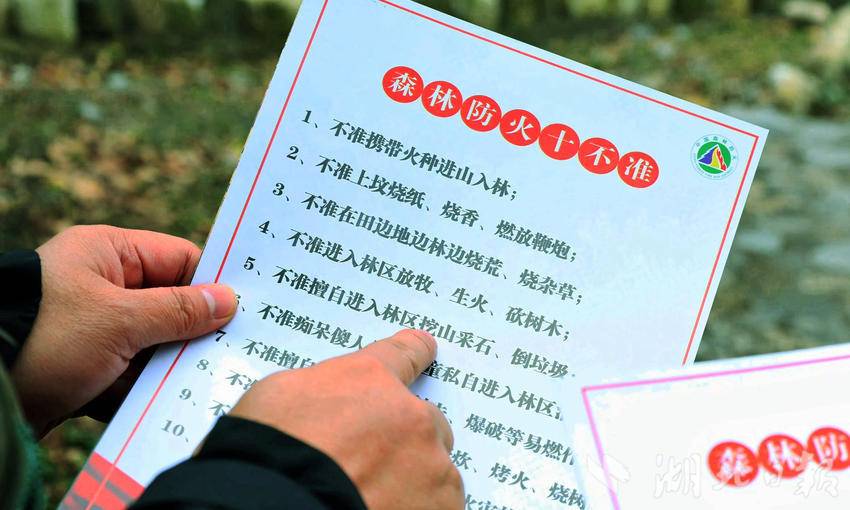 森林防火十不准
1、不准携带火种进山入林；
2、不准上坟烧纸、烧香、燃放鞭炮；
3、不准在田边地边林边烧荒、烧杂草；
4、不准进入林区放牧、生火、砍树木；
5、不准擅自进入林区挖山采石、倒垃圾
6、不准痴呆傻人 童私自进入林区
7、不准擅自 爆破等易燃
8、不 炊、烤火、烧
9、不
10、
森林防
湖北日报